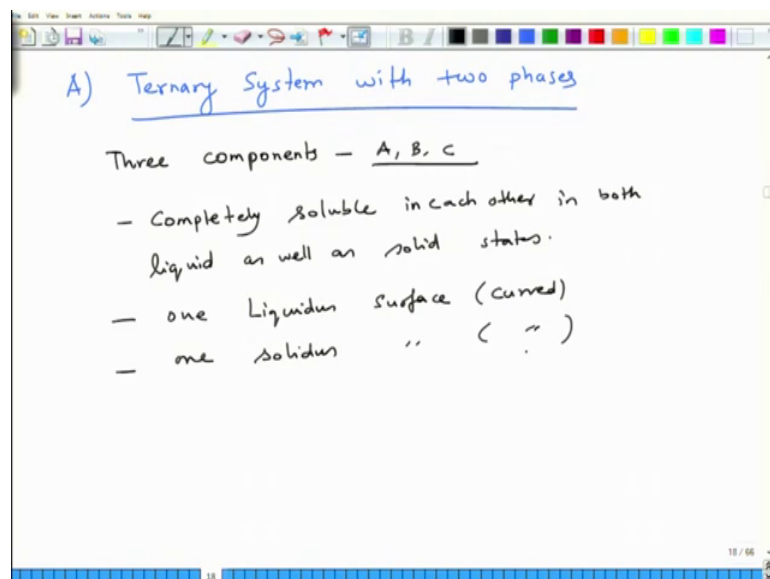 File Edit View Insert Actions Tools Help
A) Ternary System with two phases
Three components - A, B, C
- Completely soluble in each other in both
liquid as well as solid states.
- one Liquidus surface (curved)
- one solidus " ( " )
18 / 66
18